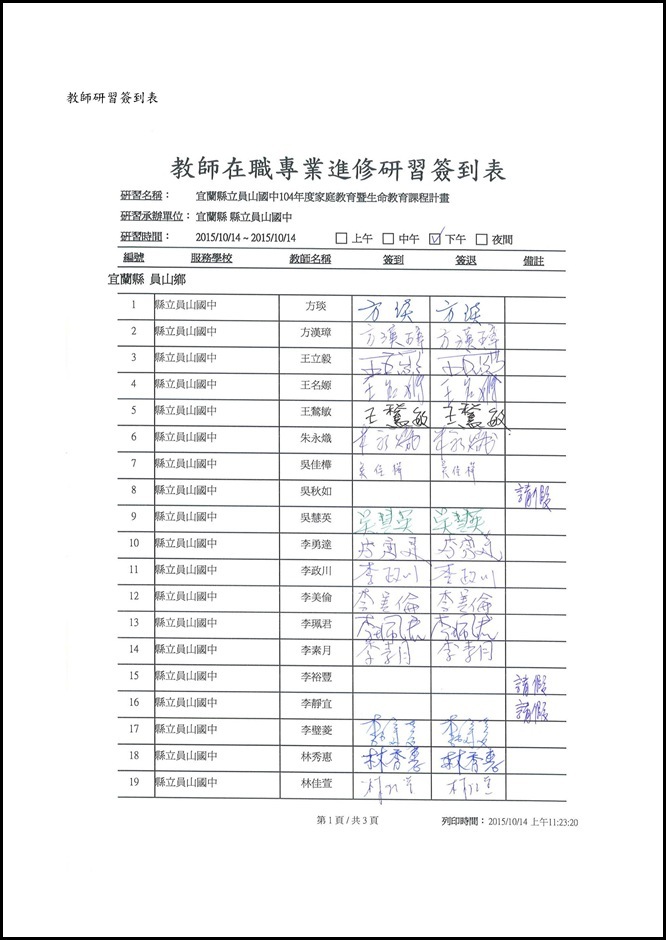 教師研習簽到表
教師在職專業進修研習簽到表
研習名稱： 宜蘭縣立員山國中104年度家庭教育暨生命教育課程計畫
研習承辦單位： 宜蘭縣 縣立員山國中
研習時間： 2015/10/14 ~ 2015/10/14 □ 上午 □ 中午 ☑ 下午 □ 夜間
編號 服務學校 教師名稱 簽到 簽退 備註
宜蘭縣 員山鄉
1 縣立員山國中 方琰 方琰 方琰
2 縣立員山國中 方漢璋 方漢璋 方漢璋
3 縣立員山國中 王立毅
4 縣立員山國中 王名嫄 王名嫄 王名嫄
5 縣立員山國中 王鶩敏 王鶩敏 王鶩敏
6 縣立員山國中 朱永熾 朱永熾 朱永熾
7 縣立員山國中 吳佳樺 吳佳樺 吳佳樺
8 縣立員山國中 吳秋如 請假
9 縣立員山國中 吳慧英 吳慧英 吳慧英
10 縣立員山國中 李勇達
11 縣立員山國中 李政川 李政川 李政川
12 縣立員山國中 李美倫 李美倫 李美倫
13 縣立員山國中 李珮君 李珮君 李珮君
14 縣立員山國中 李素月 李素月 李素月
15 縣立員山國中 李裕豐 請假
16 縣立員山國中 李靜宜 請假
17 縣立員山國中 李璧菱
18 縣立員山國中 林秀惠 林秀惠 林秀惠
19 縣立員山國中 林佳萱
第 1 頁 / 共 3 頁 列印時間：2015/10/14 上午11:23:20